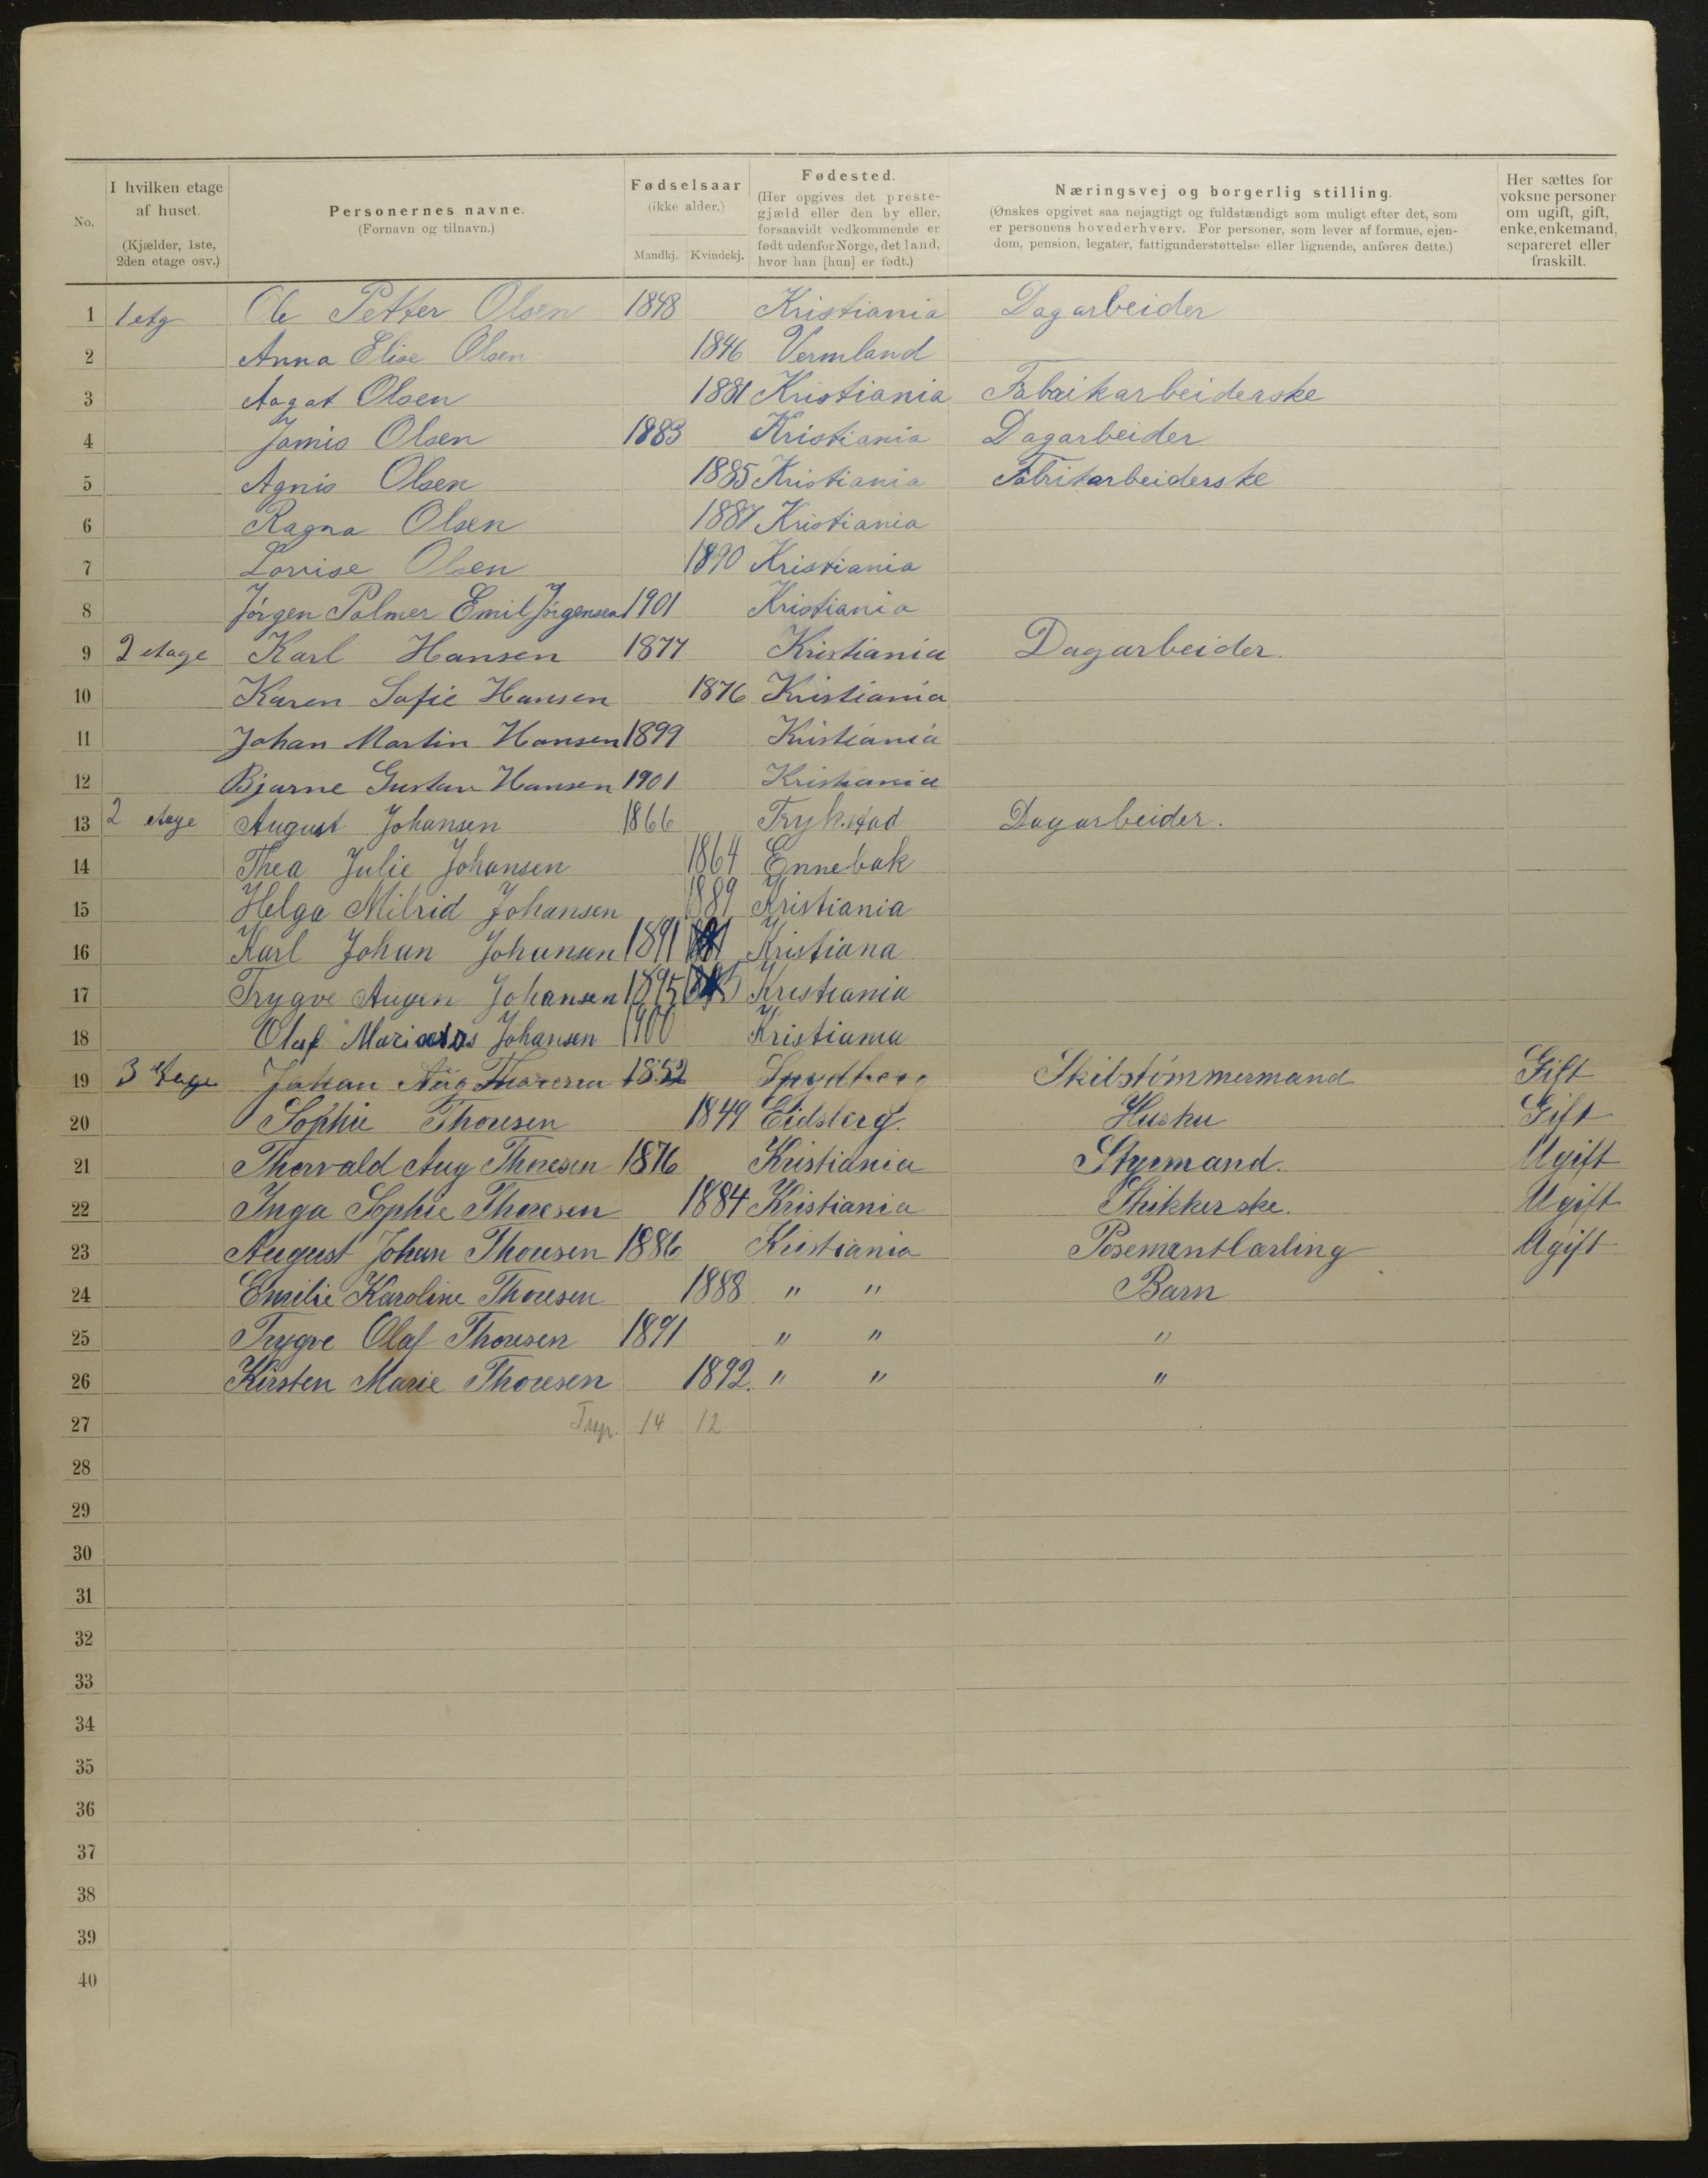 No.
I hvilken etage af huset. (Kjælder, 1ste, 2den etage osv.)
Personernes navne. (Fornavn og tilnavn.)
Fødselsaar (ikke alder.) Mandkj. Kvindekj.
Fødested. (Her opgives det prestegjæld eller den by eller, forsaavidt vedkommende er født udenfor Norge, det land, hvor han [hun] er født.)
Næringsvej og borgerlig stilling. (Ønskes opgivet saa nøjagtigt og fuldstændigt som muligt efter det, som er personens hovederhverv. For personer, som lever af formue, ejendom, pension, legater, fattigunderstøttelse eller lignende, anføres dette.)
Her sættes for voksne personer om ugift, gift, enke, enkemand, separeret eller fraskilt.
1 1 etg Ole Petter Olsen 1848 Kristiania Dagarbeider
2 Anna Elise Olsen 1846 Vermland
3 Aagat Olsen 1881 Kristiania Fabrikarbeiderske
4 Jamis Olsen 1883 Kristiania Dagarbeider
5 Agnis Olsen 1885 Kristiania Fabrikarbeiderske
6 Ragna Olsen 1887 Kristiania
7 Lovise Olsen 1890 Kristiania
8 Jørgen Palmer Emil Jørgensen 1901 Kristiania
9 2 etage Karl Hansen 1877 Kristiania Dagarbeider.
10 Karen Sofie Hansen 1876 Kristiania
11 Johan Martin Hansen 1899 Kristiania
12 Bjarne Gustav Hansen 1901 Kristiania
13 2 etage August Johansen 1866 Trykstad Dagarbeider.
14 Thea Julie Johansen 1864 Ennebak
15 Helga Milrid Johansen 1889 Kristiania
16 Karl Johan Johansen 1891 Kristiana
17 Trygve Augen Johansen 1895 Kristiania
18 Olaf Johansen 1900 Kristiania
19 3 Etage Johan Aug Thoresen 1852 Spydberg Skibstømmermand Gift
20 Sophie Thoresen 1849 Eidsberg. Hustru Gift
21 Thorvald Aug Thoresen 1876 Kristiania Styrmand. Ugift
22 Inga Sophie Thoresen 1884 Kristiania Strikkerske. Ugift
23 August Johan Thoresen 1886 Kristiania Posementlærling Ugift
24 Emilie Karoline Thoresen 1888 " " Barn
25 Trygve Olaf Thoresen 1891 " " "
26 Kirsten Marie Thoresen 1892. " " "
27 14 12
28
29
30
31
32
33
34
35
36
37
38
39
40